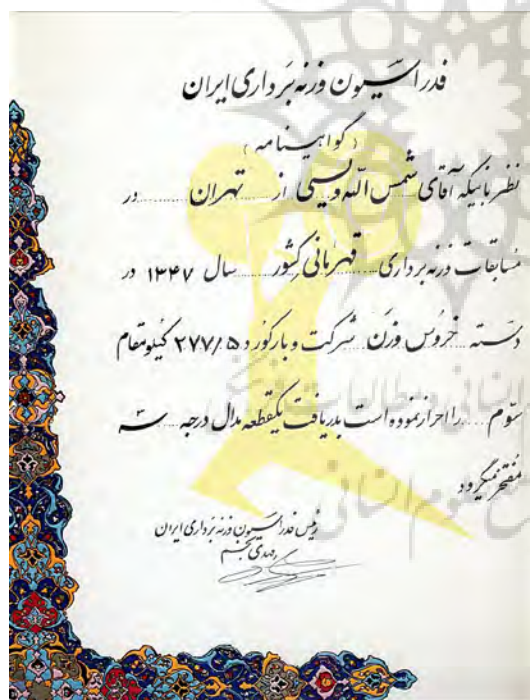 فدراسیون وزنه برداری ایران
(گواهینامه)
نظر باینکه آقای شمس الله ویسی از تهران در
مسابقات وزنه برداری قهرمانی کشور سال ۱۳۴۷ در
دسته خروس وزن شرکت و بارکورد ۲۷۷/۵ کیلو مقام
سوم را احراز نموده است بدریافت یکقطعه مدال درجه سه
مفتخر میگردد
رئیس فدراسیون وزنه برداری ایران